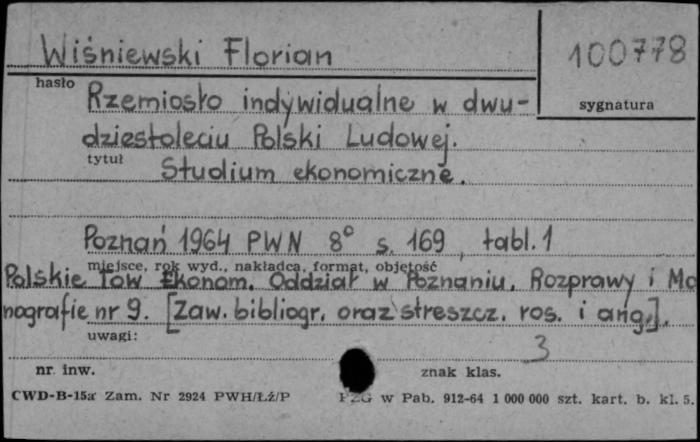 Wiśniewski Florian
100778
hasło
sygnatura
Rzemiosło indywidualne w dwu-
dziestoleciu Polski Ludowej.
tytuł
Studium ekonomiczne.
Poznań 1964 PWN 8° s. 169, tabl. 1
miejsce, rok wyd., nakładca, format, objętość
Polskie Tow Ekonom. Oddział w Poznaniu. Rozprawy i Mo
nografie nr 9. [Zaw. bibliogr. oraz streszcz. ros. i ang.].
uwagi:
3
nr inw.
znak klas.
CWD-B-15a Zam. Nr 2924 PWH/Łż/P
PZG w Pab. 912-64 1 000 000 szt. kart. b. kl. 5.